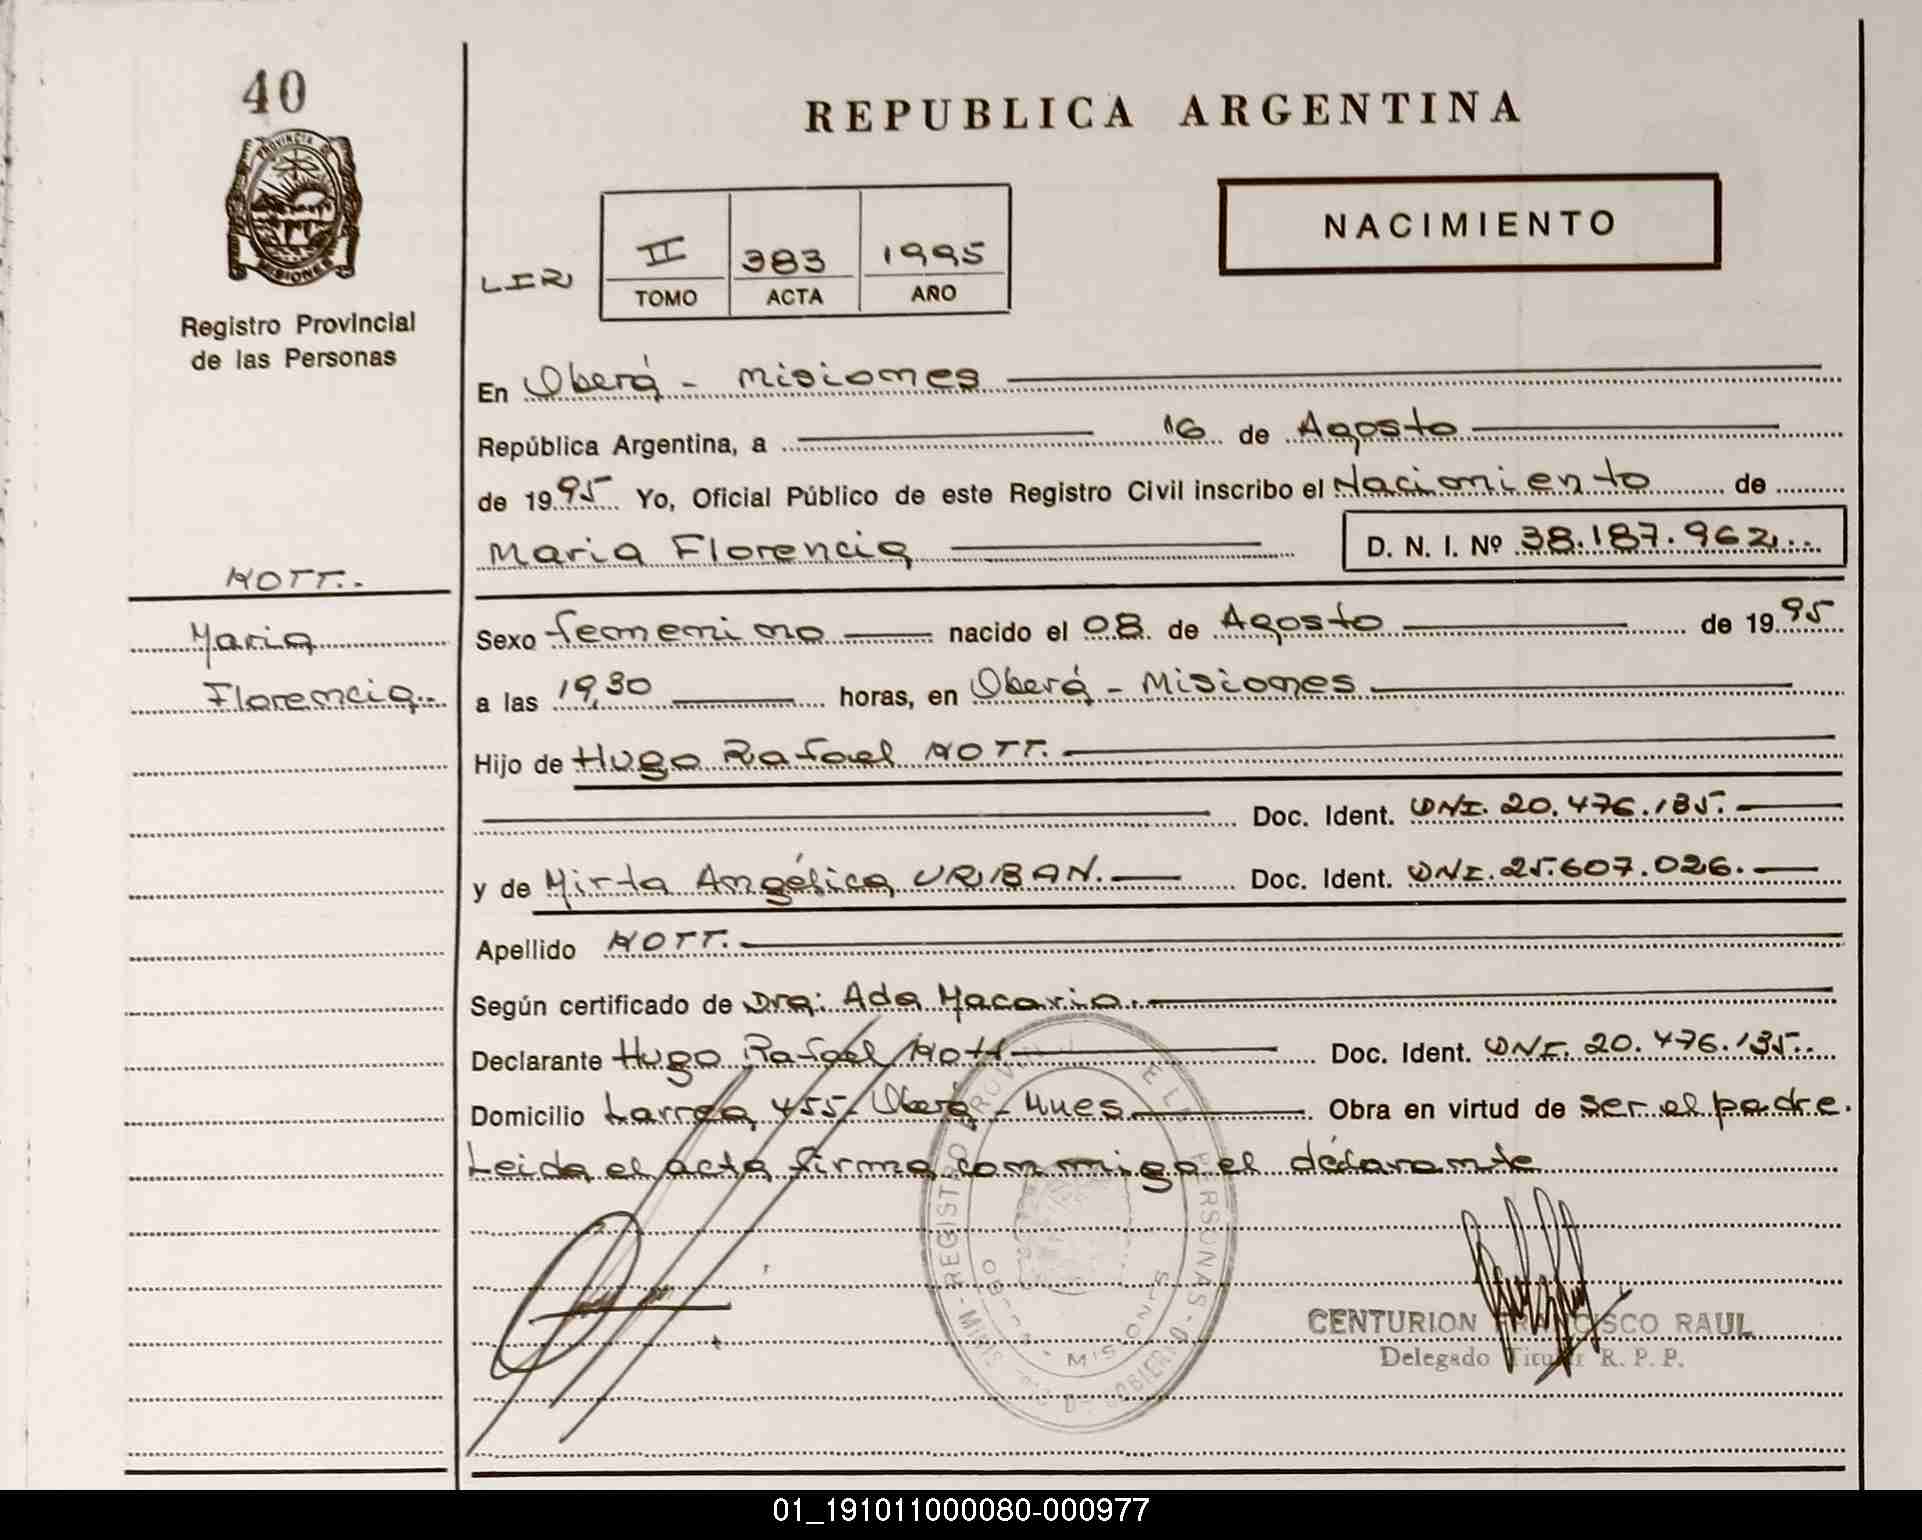 40
REPUBLICA ARGENTINA
PROVINCIA DE
MISIONES
Registro Provincial
de las Personas
NACIMIENTO
II 383 1995
TOMO ACTA AÑO
En Oberá - Misiones
República Argentina, a 16 de Agosto
de 1995 Yo, Oficial Público de este Registro Civil inscribo el Nacimiento de
Maria Florencia D. N. I. Nº 38.187.962
Maria
Florencia
Sexo femenino nacido el 08 de Agosto de 1995
a las 19,30 horas, en Oberá - Misiones
Hijo de Hugo Rafael
Doc. Ident. DNI. 20.476.135.
y de Mirta Angélica URBAN. Doc. Ident. DNI. 25.607.026.
Apellido
Según certificado de Dra: Ada Macaria.
Declarante Hugo Rafael Doc. Ident. DNI. 20.476.135.
Domicilio Larrea 455- Oberá - Mnes Obra en virtud de ser el padre.
Leida el acta firma conmigo el declarante
CENTURION FRANCISCO RAUL
Delegado Titular R. P. P.
01_191011000080-000977